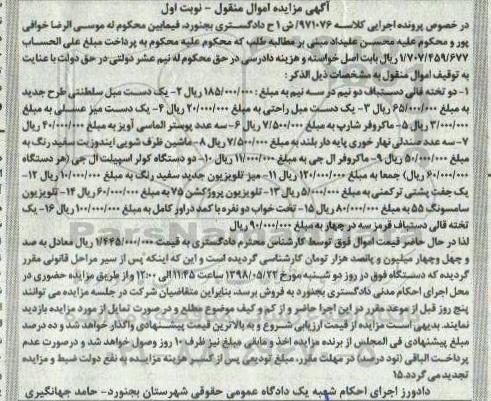 آگهی مزایده اموال منقول - نوبت اول
در خصوص پرونده اجرایی کلاسه ۹۷۱۰۷۶/ش ا ح دادگستری بجنورد، فیمابین محکوم له موسی الرضا خوافی
پور و محکوم علیه محسن علیداد مبنی بر مطالبه طلب که محکوم علیه محکوم به پرداخت مبلغ علی الحساب
۱/۷۰۷/۴۵۹/۶۷۷ ریال بابت اصل خواسته و هزینه دادرسی در حق محکوم له نیم عشر دولتی در حق دولت با عنایت
به توقیف اموال منقول به مشخصات ذیل الذکر:
۱- دو تخته قالی دستباف دو نیم در سه نیم به مبلغ: ۱۸۵/۰۰۰/۰۰۰ ریال ۲- یک دست مبل سلطنتی طرح جدید
به مبلغ ۶۵/۰۰۰/۰۰۰ ریال ۳- یک دست مبل راحتی به مبلغ ۲۰/۰۰۰/۰۰۰ ریال ۴- یک دست میز عسلی به مبلغ
۳/۰۰۰/۰۰۰ ریال ۵- ماکروفر شارپ به مبلغ ۷/۵۰۰/۰۰۰ ریال ۶- سه عدد پوستر الماسی آویز به مبلغ ۴۰/۰۰۰/۰۰۰ ریال
۷- سه عدد صندلی نهار خوری پایه دار بلند به مبلغ ۷/۵۰۰/۰۰۰ ریال ۸- ماشین ظرف شویی ایندوزیت سفید رنگ به
مبلغ ۵۰/۰۰۰/۰۰۰ ریال ۹- ماکروفر ال جی به مبلغ ۱۱/۰۰۰/۰۰۰ ریال ۱۰- دو دستگاه کولر اسپیلت ال جی (هر دستگاه
۶۰/۰۰۰/۰۰۰ ریال) جمعا به مبلغ ۱۲۰/۰۰۰/۰۰۰ ریال ۱۱- میز تلویزیون جدید سفید رنگ به مبلغ ۱۰/۰۰۰/۰۰۰ ریال ۱۲-
یک جفت پشتی ترکمنی به مبلغ ۵/۰۰۰/۰۰۰ ریال ۱۳- تلویزیون پروژکشن ۷۵ به مبلغ ۶۰/۰۰۰/۰۰۰ ریال ۱۴- تلویزیون
سامسونگ ۵۵ به مبلغ ۸۰/۰۰۰/۰۰۰ ریال ۱۵- تخت خواب دو نفره با کمد دراور کامل به مبلغ ۱۰۰/۰۰۰/۰۰۰ ریال ۱۶- یک
تخته قالی دستباف قرمز سه در چهار به مبلغ ۹۰/۰۰۰/۰۰۰ ریال
لذا در حال حاضر قیمت اموال فوق توسط کارشناس محترم دادگستری به قیمت ۱/۴۴۵/۰۰۰/۰۰۰ ریال معادل به صد
و چهل وچهار میلیون و پانصد هزار تومان کارشناسی گردیده است و این که اینکه پس از سیر مراحل قانونی مقرر
گردیده که دستگاه فوق در روز دو شنبه مورخ ۱۳۹۸/۰۵/۲۲ ساعت ۱۱:۴۵ الی ۱۲:۰۰ و از طریق مزایده حضوری در
محل اجرای احکام مدنی دادگستری بجنورد به فروش برسد، بنابراین متقاضیان شرکت در جلسه مزایده می توانند
پنج روز قبل از موعد مقرر در این اجرا حاضر و از کم و کیف موضوع مطلع و در صورت تمایل از مورد مزایده بازدید
نمایند. بدیهی است مزایده از قیمت ارزیابی شروع و به بالاترین قیمت پیشنهادی واگذار خواهد شد و ده درصد
مبلغ پیشنهادی فی المجلس از برنده مزایده اخذ و مابقی مبلغ نیز ظرف ۱۰ روز وصول خواهد شد و در صورت عدم
پرداخت الباقی (نود درصد) در مهلت مقرر، مبلغ تودیعی پس از کسر هزینه مزایده به نفع دولت ضبط و مزایده
تجدید می گردد.۱۵
دادورز اجرای احکام شعبه یک دادگاه عمومی حقوقی شهرستان بجنورد- حامد جهانگیری